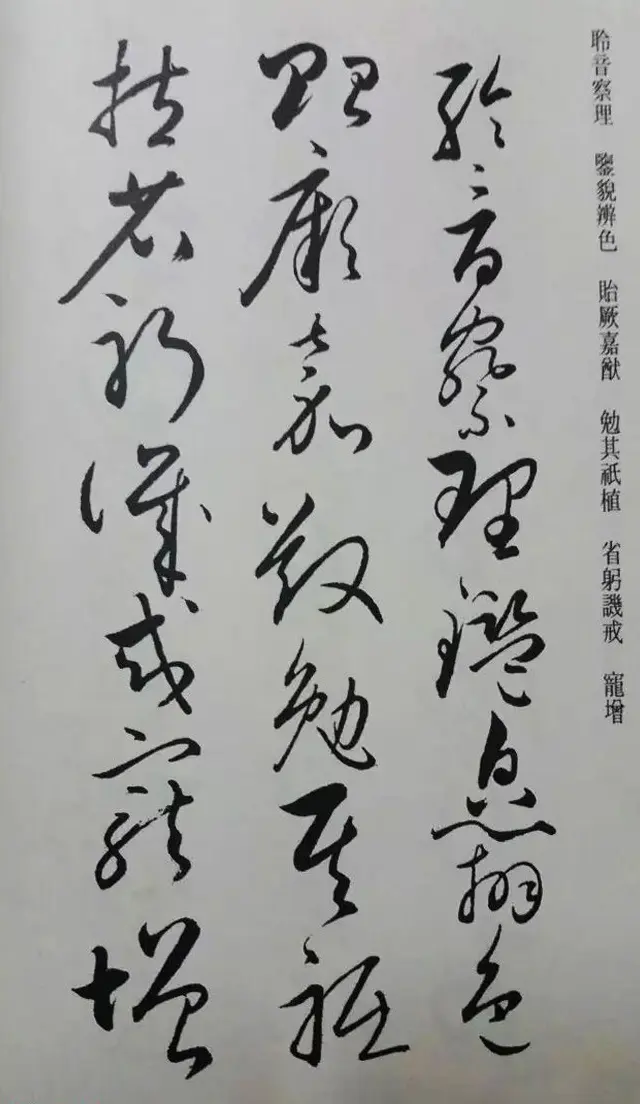 聆音察理　鑒貌辨色　貽厥嘉猷　勉其祗植　省躬譏戒　寵增
聆音察理鑒貌辨色
貽厥嘉猷勉其祗
植省躬譏戒寵增